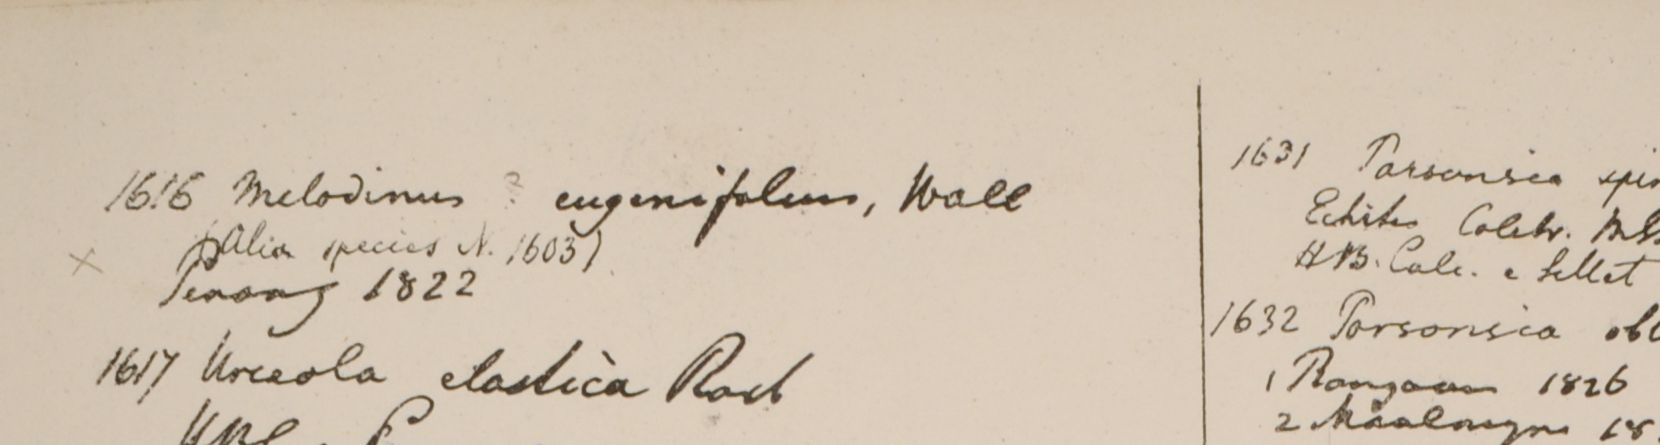 1616 Melodinus ? eugenifolius, Wall
(Alia species N. 1603)
Penang 1822
1617 Urceola elastica Roxb
HBC
1631 Parsonsia spin
Echites Colebr. Mss
HB. Calc. e Sillet
1632 Parsonsia obl
1 Rangoon 1826
2 18